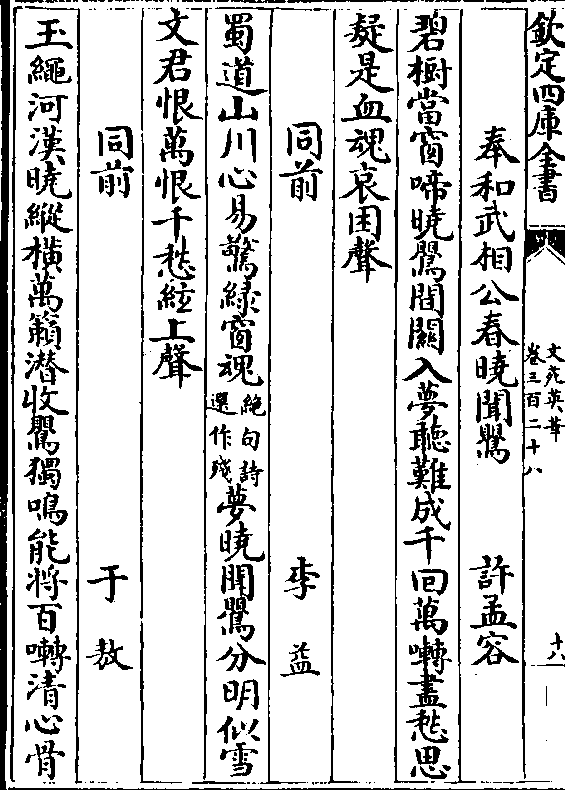 欽定四庫全書
文苑英華
卷三百二十八
十八
奉和武相公春曉聞鶯 許孟容
碧樹當窗啼曉鶯間關入夢聽難成千回萬囀盡愁思
疑是血魂哀困聲
同前 李益
蜀道山川心易驚綠窗魂絶句詩選作殘夢曉聞鶯分明似雪
文君恨萬恨千愁絃上聲
同前 于敖
玉繩河漢曉縱橫萬籟潜收鶯獨鳴能將百囀清心骨